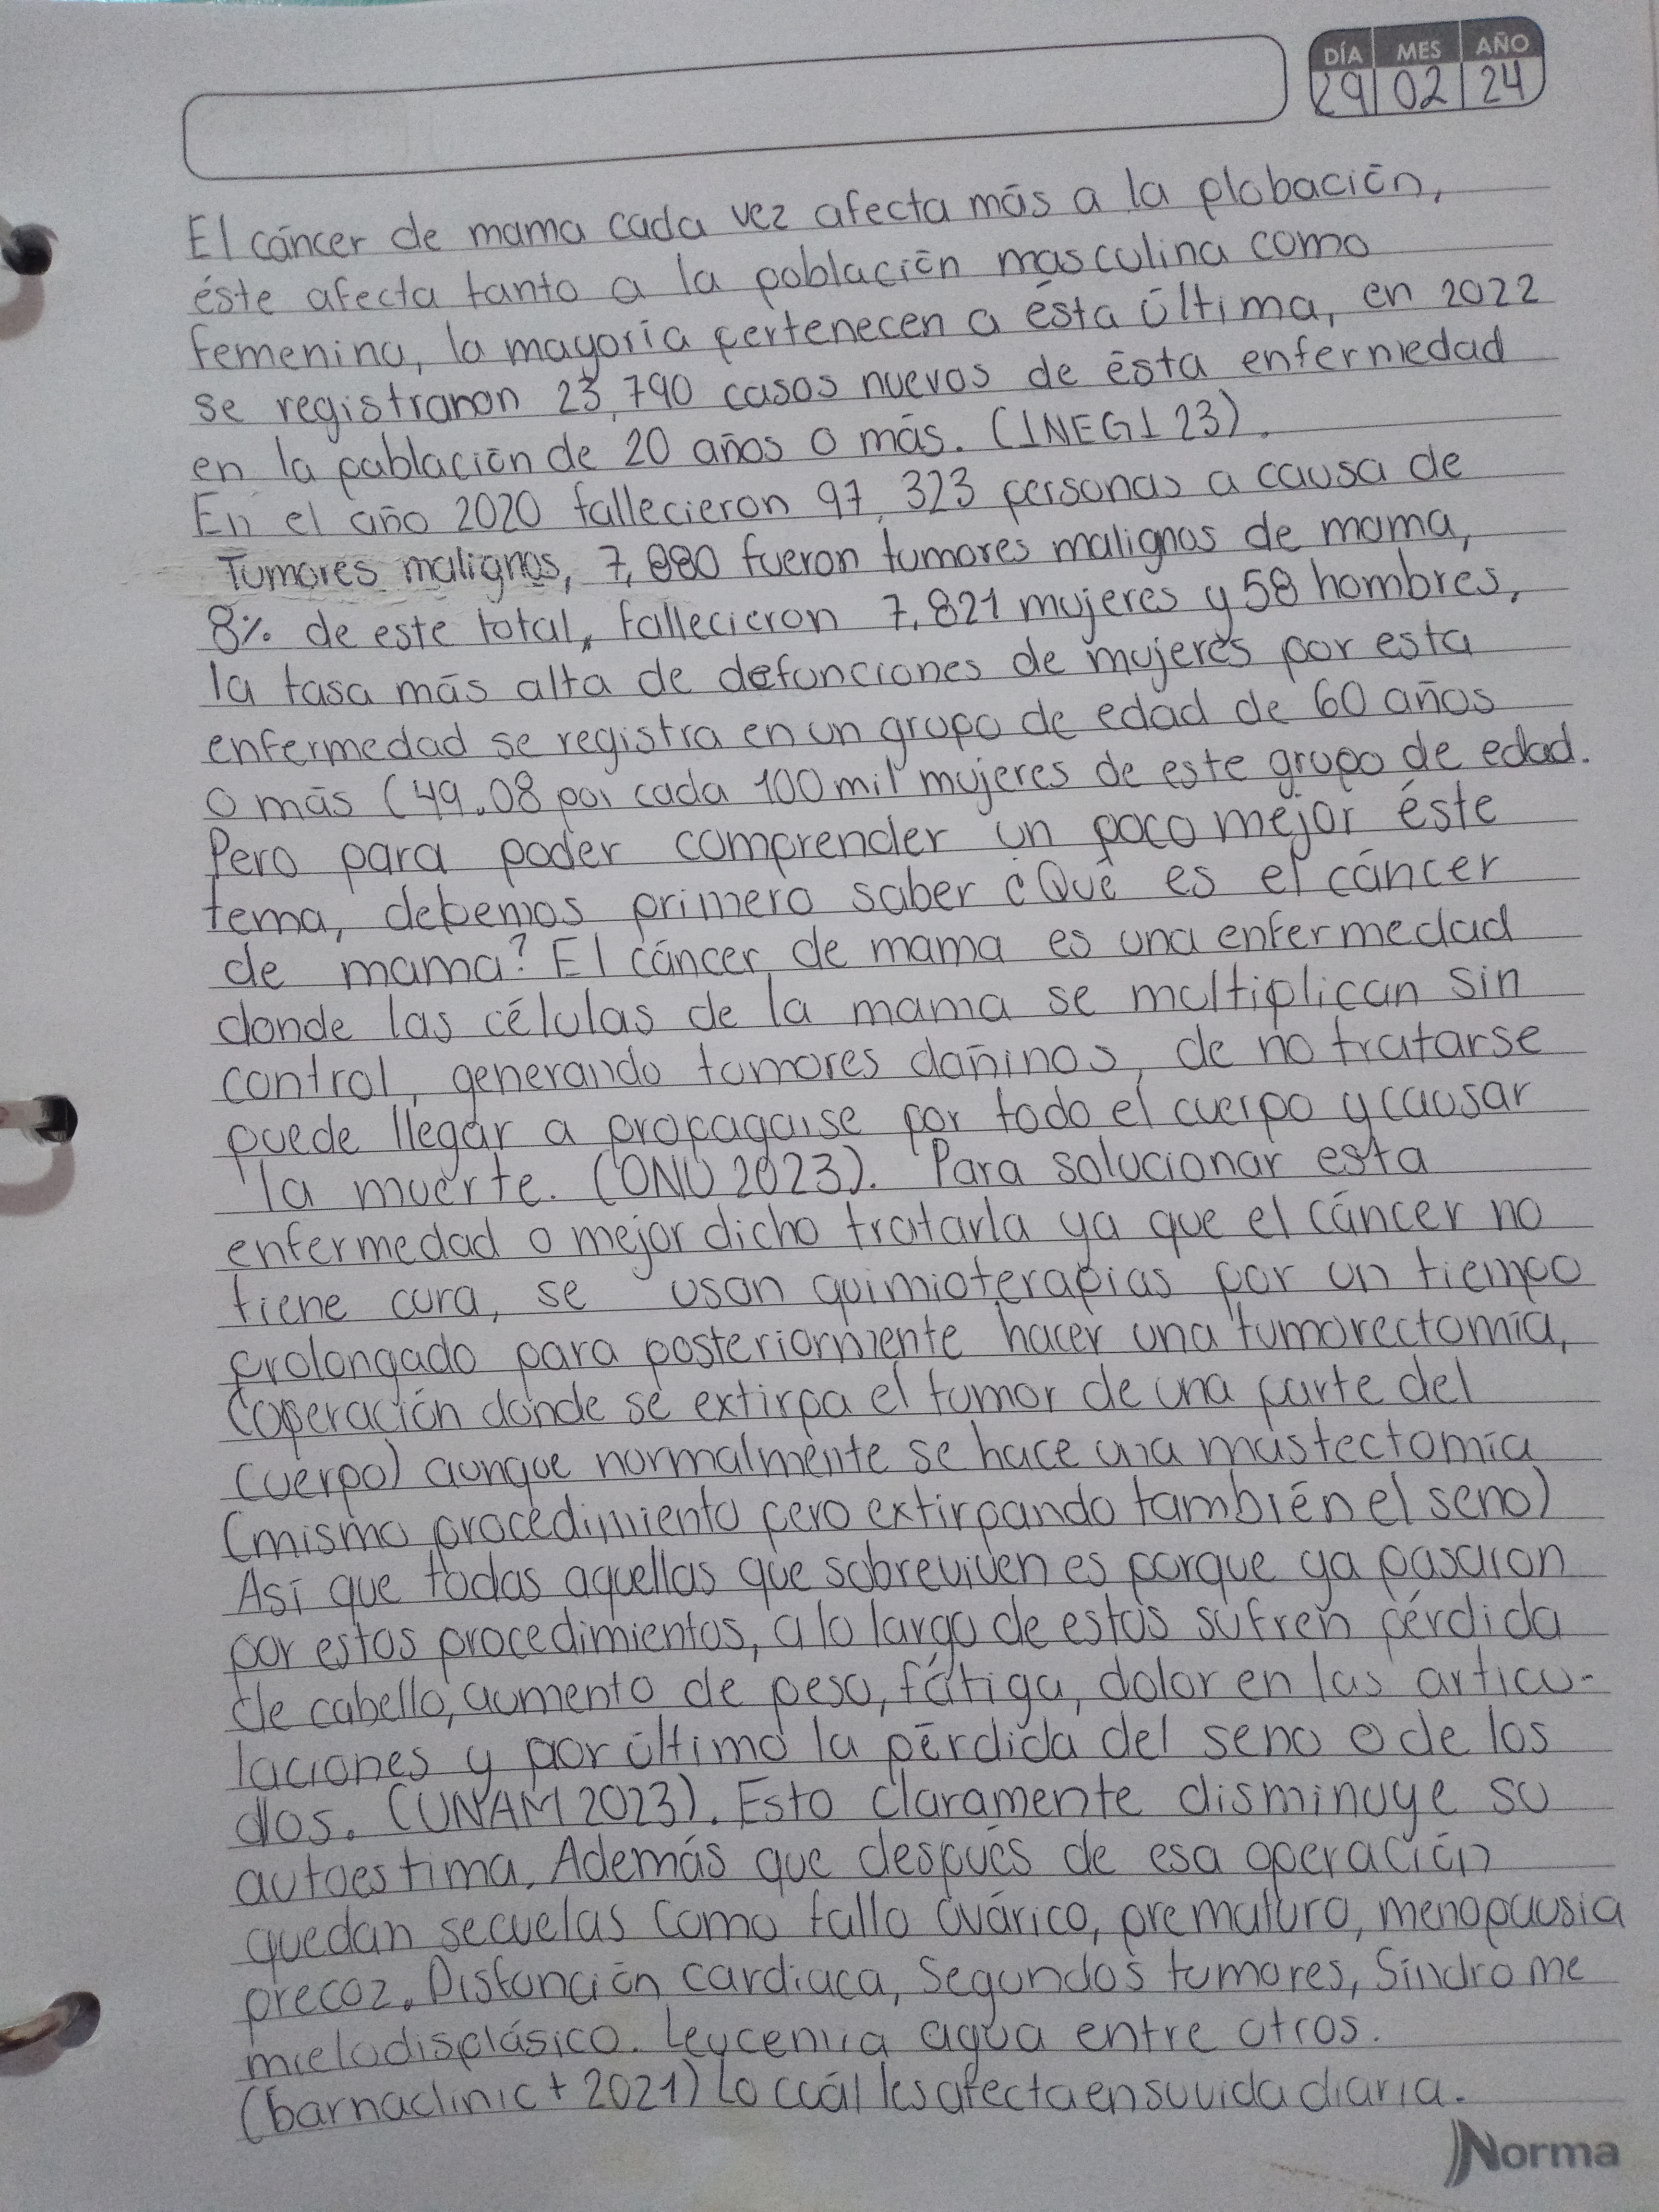 DÍA MES AÑO
29 02 24
El cáncer de mama cada vez afecta más a la plobación,
éste afecta tanto a la población masculina como
femenina, la mayoría pertenecen a ésta última, en 2022
se registraron 23,790 casos nuevos de ésta enfermedad
en la población de 20 años o más. (INEGI 23).
En el año 2020 fallecieron 97,323 personas a causa de
Tumores malignos, 7,880 fueron tumores malignos de mama,
8% de este total, fallecieron 7,821 mujeres y 58 hombres,
la tasa más alta de defunciones de mujeres por esta
enfermedad se registra en un grupo de edad de 60 años
o más (49.08 por cada 100 mil mujeres de este grupo de edad.
Pero para poder comprender un poco mejor éste
tema, debemos primero saber ¿Qué es el cáncer
de mama? El cáncer de mama es una enfermedad
donde las células de la mama se multiplican sin
control, generando tumores dañinos, de no tratarse
puede llegar a propagarse por todo el cuerpo y causar
la muerte. (ONU 2023). Para solucionar esta
enfermedad o mejor dicho tratarla ya que el cáncer no
tiene cura, se usan quimioterapias por un tiempo
prolongado para posteriormente hacer una tumorectomía,
(operación donde se extirpa el tumor de una parte del
cuerpo) aunque normalmente se hace una mastectomía
(mismo procedimiento pero extirpando también el seno)
Así que todas aquellas que sobreviven es porque ya pasaron
por estos procedimientos, a lo largo de estos sufren pérdida
de cabello, aumento de peso, fátiga, dolor en las articu-
laciones y por último la pérdida del seno o de los
dos. (UNAM 2023). Esto claramente disminuye su
autoestima. Además que después de esa operación
quedan secuelas como fallo ovárico, prematuro, menopausia
precoz. Disfunción cardiaca, Segundos tumores, Síndrome
mielodisplásico. Leucemia agua entre otros.
(barnaclinic+ 2021) Lo cuál les afecta en su vida diaria.
Norma